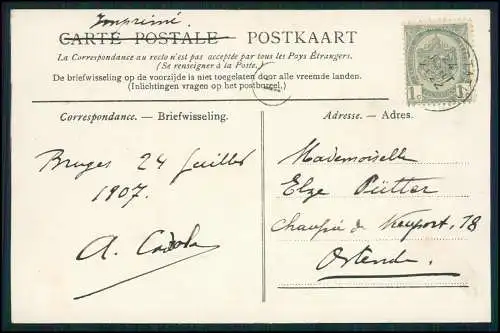 Imprimé
CARTE POSTALE POSTKAART
La Correspondance au recto n'est pas acceptée par tous les Pays Étrangers.
(Se renseigner à la Poste.)
De briefwisseling op de voorzijde is niet toegelaten door alle vreemde landen.
(Inlichtingen vragen op het postbureel.)
Correspondance. — Briefwisseling.
Bruges 24 Juillet
1907.
A.
Adresse. — Adres.
Mademoiselle
Elze Pütter
Chaussée de Nieuport, 78
Ostende.
1 1